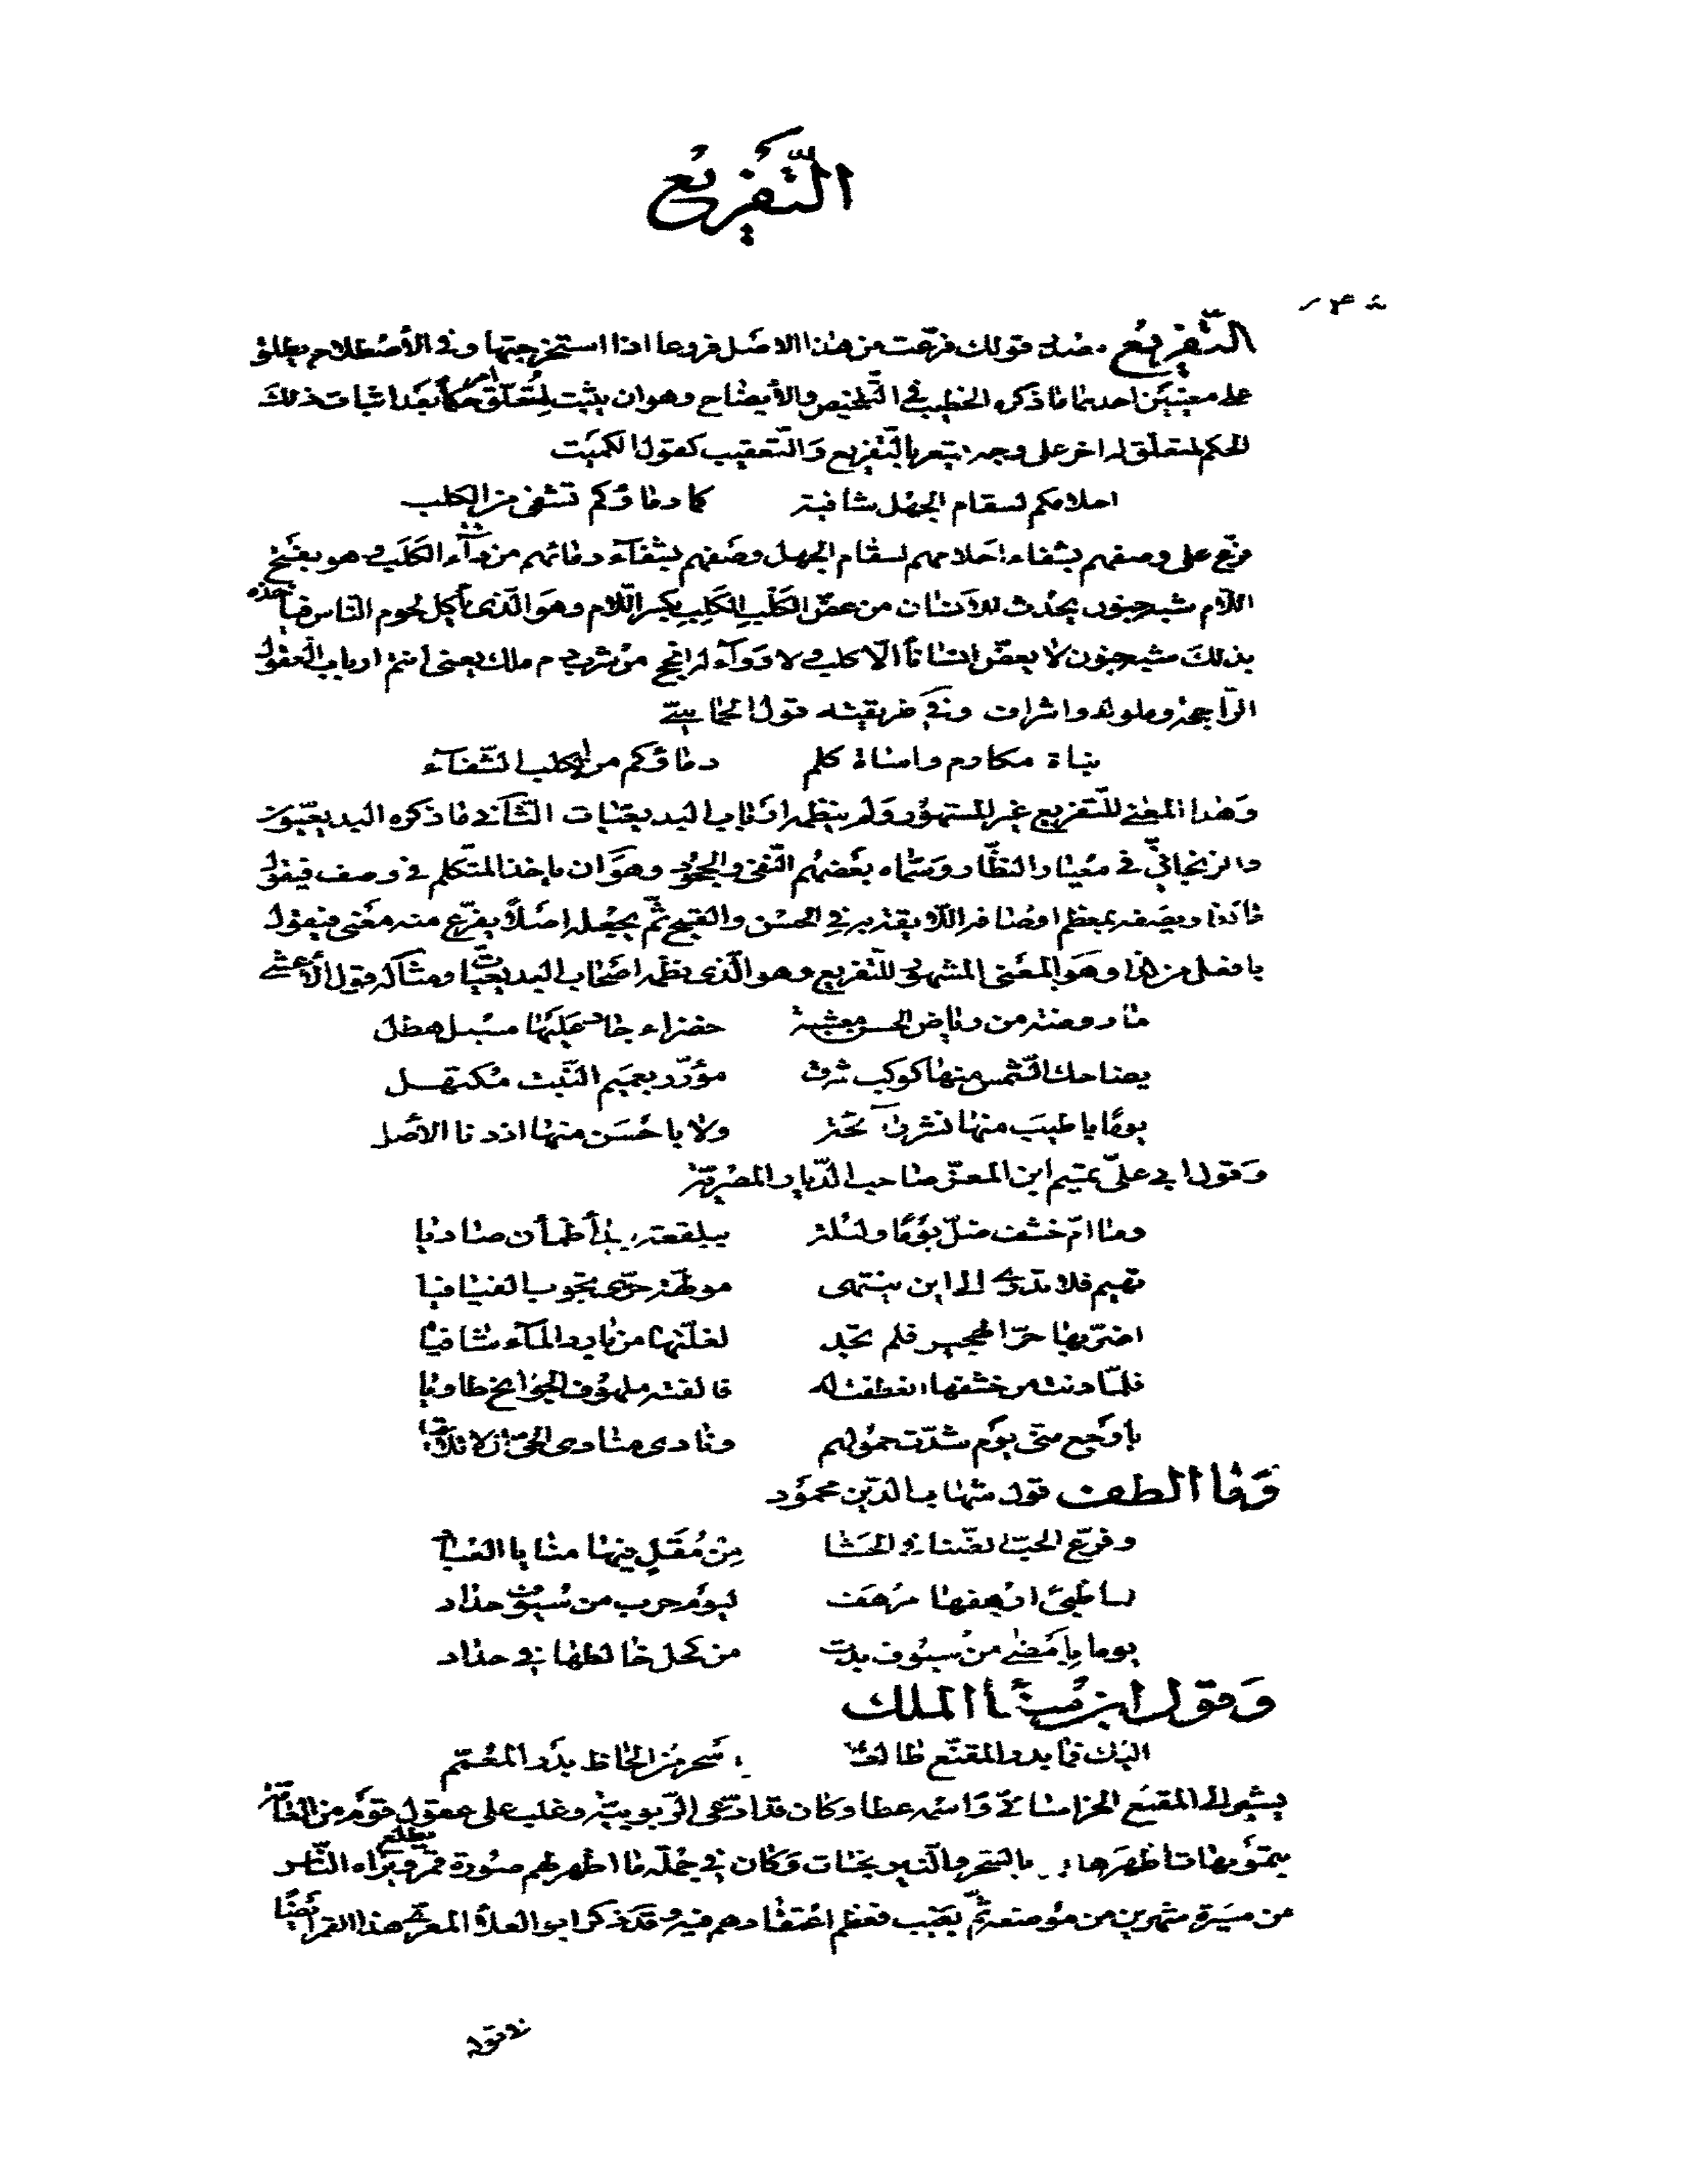 التّفريع
التّفريع مصدر قولك فرّعت من هذا الاصل فروعا اذا استخرجتها وفى الأصطلاح يطلق
على معنيين احدهما ما ذكره الخطيب في التّلخيص والأيضاح وهو ان يثبت لمتعلّق امر حكم بعد اثبات ذلك
الحكم لمتعلّق له اخر على وجه يشعر بالتّفريع والتّعقيب كقول الكميت
احلامكم لسقام الجهل شافية كما دماؤكم تشفى من الكلب
فرّع على وصفهم بشفاء احلامهم لسقام الجهل وصفهم بشفآء دمائهم من دآء الكَلَب وهو بفتح
اللّام شبه جنون يحدث للانسان من عضّ الكَلْب الكَلِب بكسر اللّام وهو الّذى يأكل لحوم النّاس فيأخذه
بذلك شبه جنون لا يعضّ انسانًا الّا كلب ولا دوآء له انجح من شرب دم ملك يعنى أنتم ارباب العقول
الرّاجحة وملوك واشراف وفي طريقته قول الحماسيّ
بناة مكارم واساة كلم دماؤكم من الكلب الشّفآء
وهذا المعنى للتّفريع غير المشهور ولم ينظمه ارباب البديعيّات الثّاني ما ذكره البديعيّون
والزنجانيّ في معيار النظّار وسمّاه بعضهم النّفى والجحود وهو ان ياخذ المتكلم في وصف فيقول
ما كذا ويصفه بمعظم اوصافه اللّايقة به في الحسن والقبح ثمّ يجعله اصلاً يفرّع منه معنى فيقول
بافضل من كذا وهو المعنى المشهور للتّفريع وهو الّذى نظمه اصحاب البديعيّات ومثاله قول الأعشى
ما روضة من رياض الحسن معشبة خضراء جاد عليها مسبل هطل
يضاحك الشّمس منها كوكب شرق مؤزّر بعميم النّبت مكتهل
يومًا باطيب منها نشر رائحة ولا باحسن منها اذ دنا الأصل
وقول ابي عليّ تميم ابن المعزّ صاحب الدّيار المصريّة
وما امّ خشف ضلّ يومًا وليلة ببلقعة بيدآ ظمأن صاديا
تهيم فلا تدرى الى اين ينتهى مولّهة حتّى تجوب الفيافيا
اضرّ بها حرّ الهجير فلم تجد لغلّتها من بارد المآء شافيًا
فلمّا دنت من خشفها انعطفت له فالفته ملهوف الجوانح طاويا
باوجع منّى يوم شدّت حمولهم ونادى منادى الحىّ ان لا تلاقيا
وما الطف قول شهاب الدّين محمود
يومًا بأمضى من سيوف بدت من كحل خالطها في حداد
وقول ابن سنأ الملك
اليك فما بدر المقنّع طالعًا باسحر من الحاظ بدر المعمّم
يشير الى المقنع الخراسانيّ واسمه عطا وكان قد ادّعى الرّبوبيّة وغلب على عقول قوم من العآمّة
بتمويهات اظهرها بالسّحر والنّيرنجات وكان في جملة ما اظهر لهم صورة قمر يطلع ويراه النّاس
من مسيرة شهرين من موضعه ثمّ يغيب فعظم اعتقادهم فيه وقد ذكر ابو العلأ المعرّى هذا القمر أيضًا